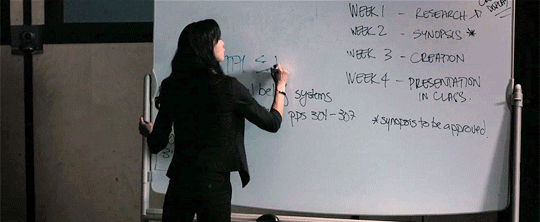 WEEK 1 - RESEARCH
WEEK 2 - SYNOPSIS *
WEEK 3 - CREATION
WEEK 4 - PRESENTATION
IN CLASS.
systems
pps 301-307
*synopsis to be approved